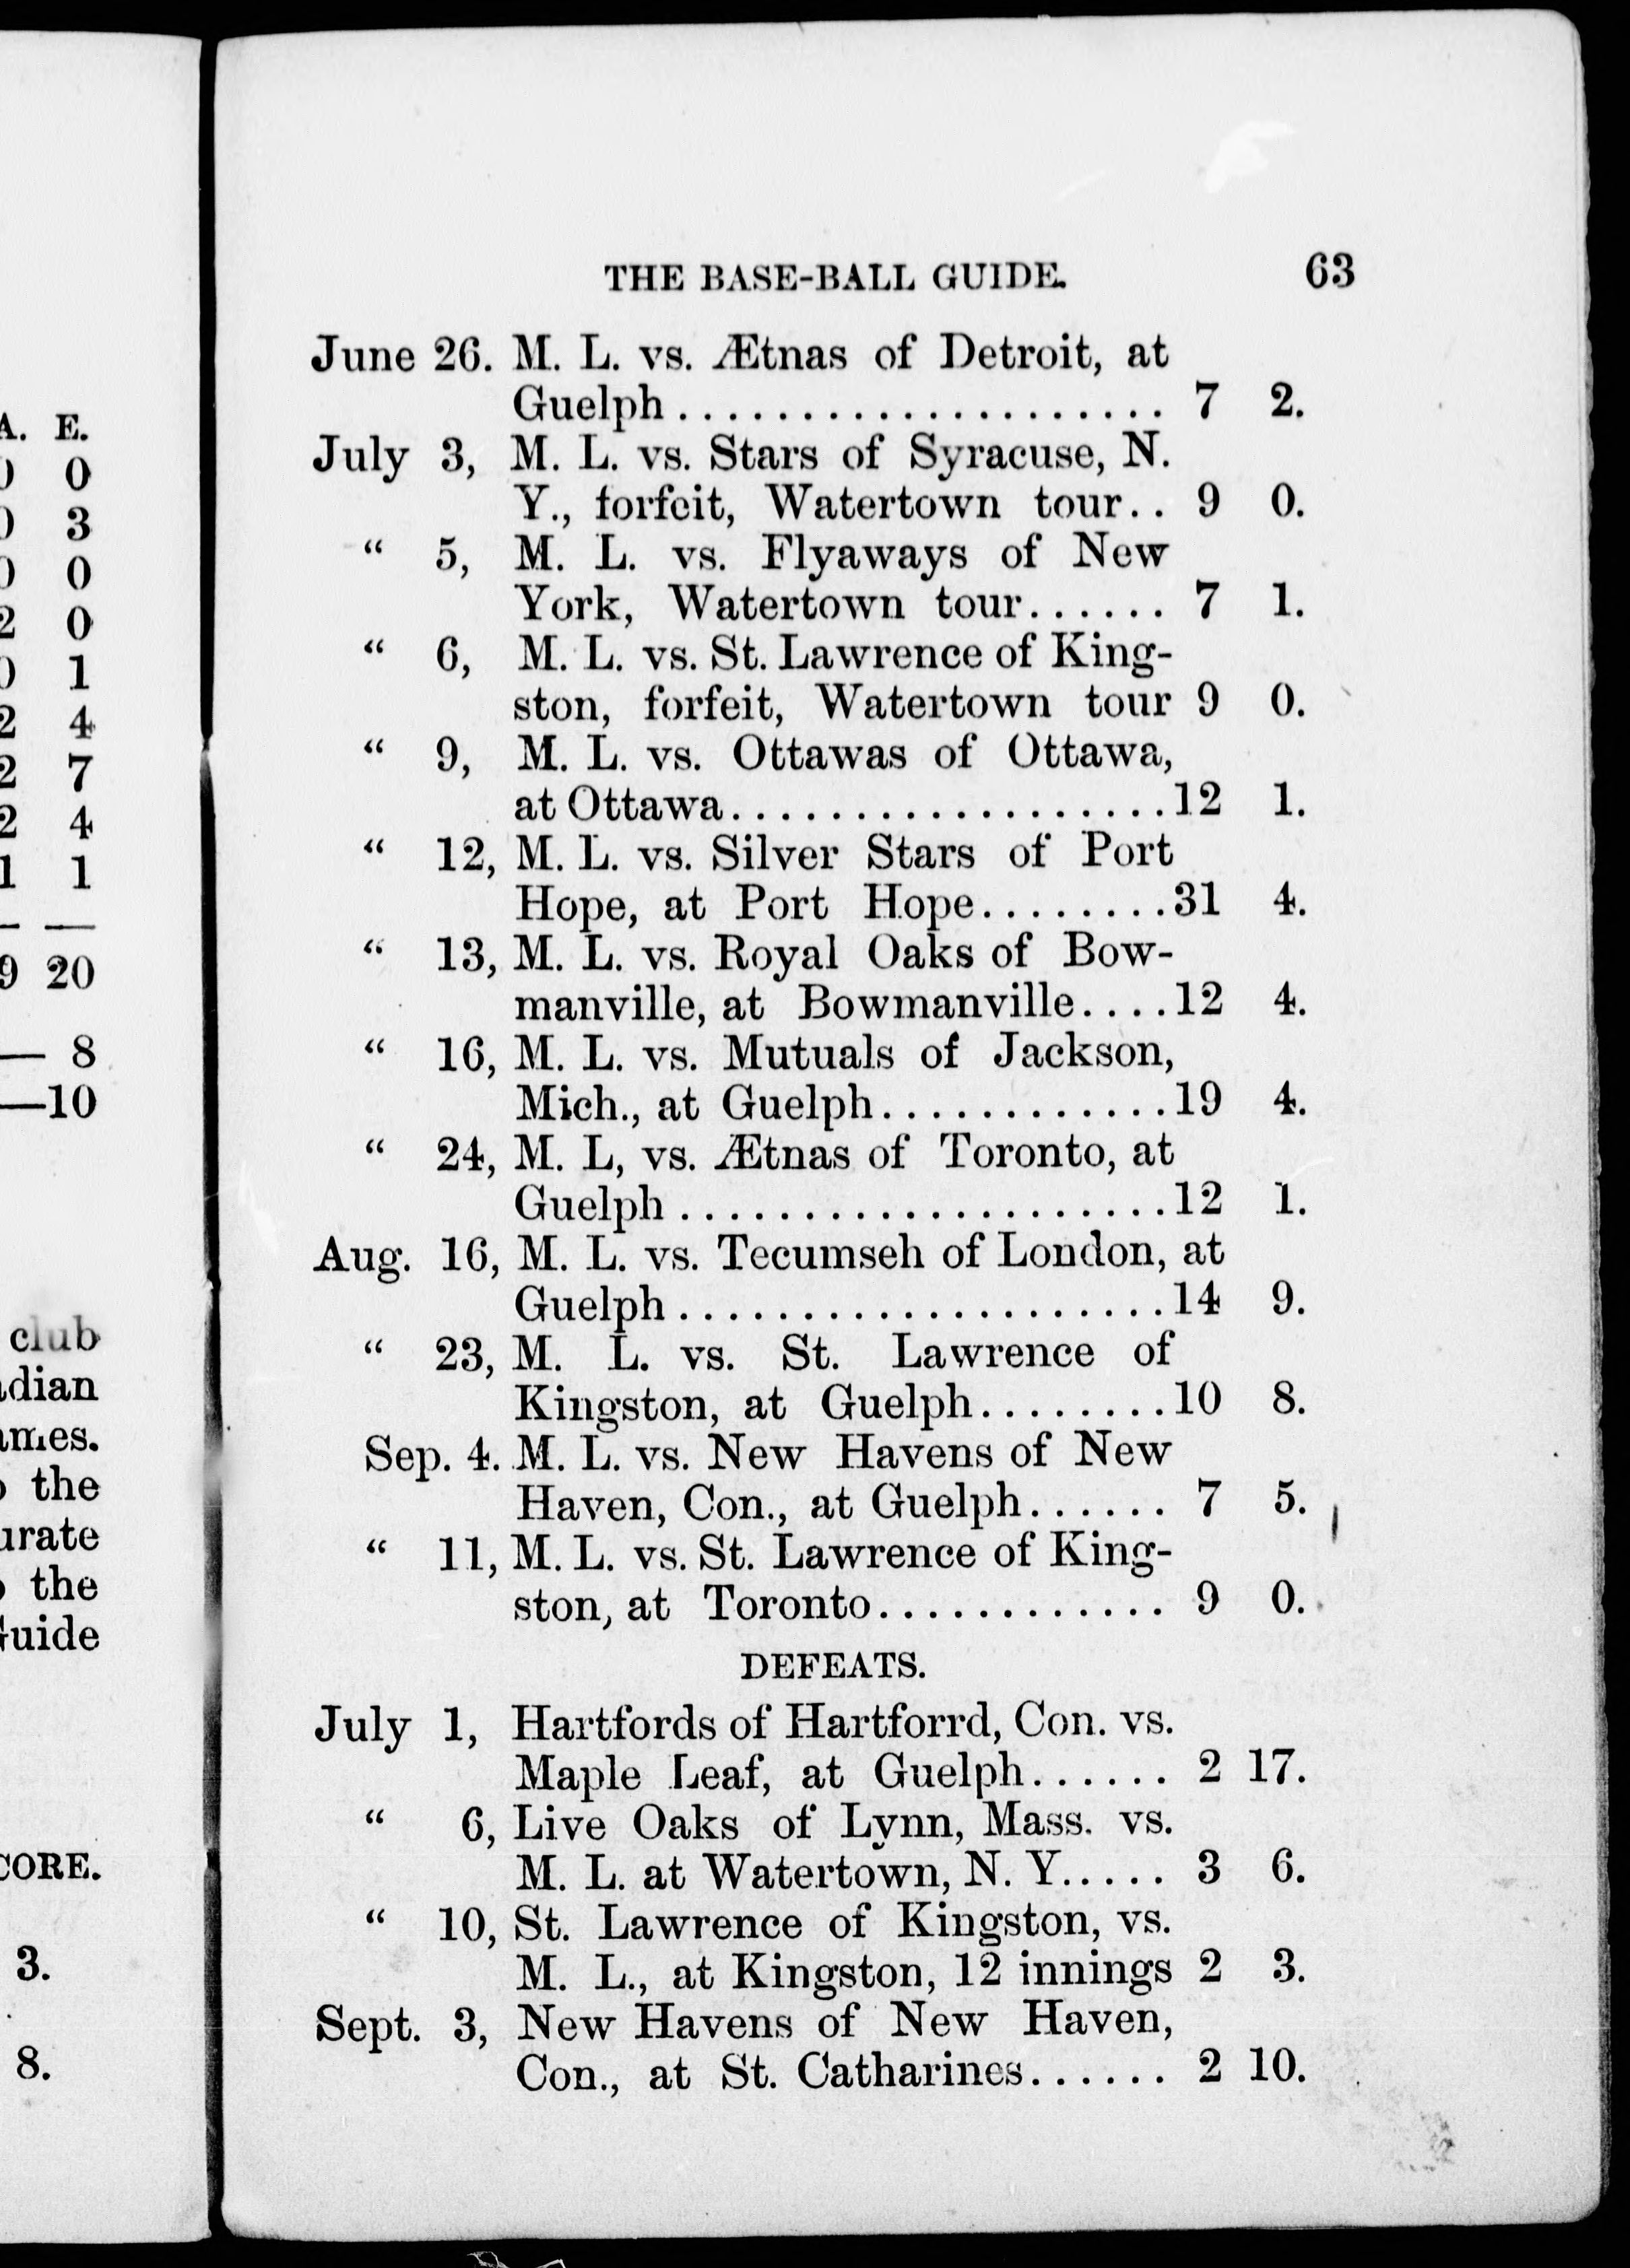 A. E.
0
3
0
2 0
1
2 4
2 7
2 4
1 1
9 20
— 8
—10
club
the
the
3.
8.
THE BASE-BALL GUIDE. 63
June 26. M. L. vs. Ætnas of Detroit, at
Guelph.................... 7 2.
July 3, M. L. vs. Stars of Syracuse, N.
Y., forfeit, Watertown tour.. 9 0.
“ 5, M. L. vs. Flyaways of New
York, Watertown tour...... 7 1.
“ 6, M. L. vs. St. Lawrence of King-
ston, forfeit, Watertown tour 9 0.
“ 9, M. L. vs. Ottawas of Ottawa,
at Ottawa..................12 1.
“ 12, M. L. vs. Silver Stars of Port
Hope, at Port Hope........31 4.
“ 13, M. L. vs. Royal Oaks of Bow-
manville, at Bowmanville....12 4.
“ 16, M. L. vs. Mutuals of Jackson,
Mich., at Guelph............19 4.
“ 24, M. L, vs. Ætnas of Toronto, at
Guelph ....................12 1.
Aug. 16, M. L. vs. Tecumseh of London, at
Guelph ....................14 9.
“ 23, M. L. vs. St. Lawrence of
Kingston, at Guelph........10 8.
Sep. 4. M. L. vs. New Havens of New
Haven, Con., at Guelph...... 7 5.
“ 11, M. L. vs. St. Lawrence of King-
ston, at Toronto............ 9 0.
DEFEATS.
July 1, Hartfords of Hartforrd, Con. vs.
Maple Leaf, at Guelph...... 2 17.
“ 6, Live Oaks of Lynn, Mass. vs.
M. L. at Watertown, N. Y..... 3 6.
“ 10, St. Lawrence of Kingston, vs.
M. L., at Kingston, 12 innings 2 3.
Sept. 3, New Havens of New Haven,
Con., at St. Catharines...... 2 10.